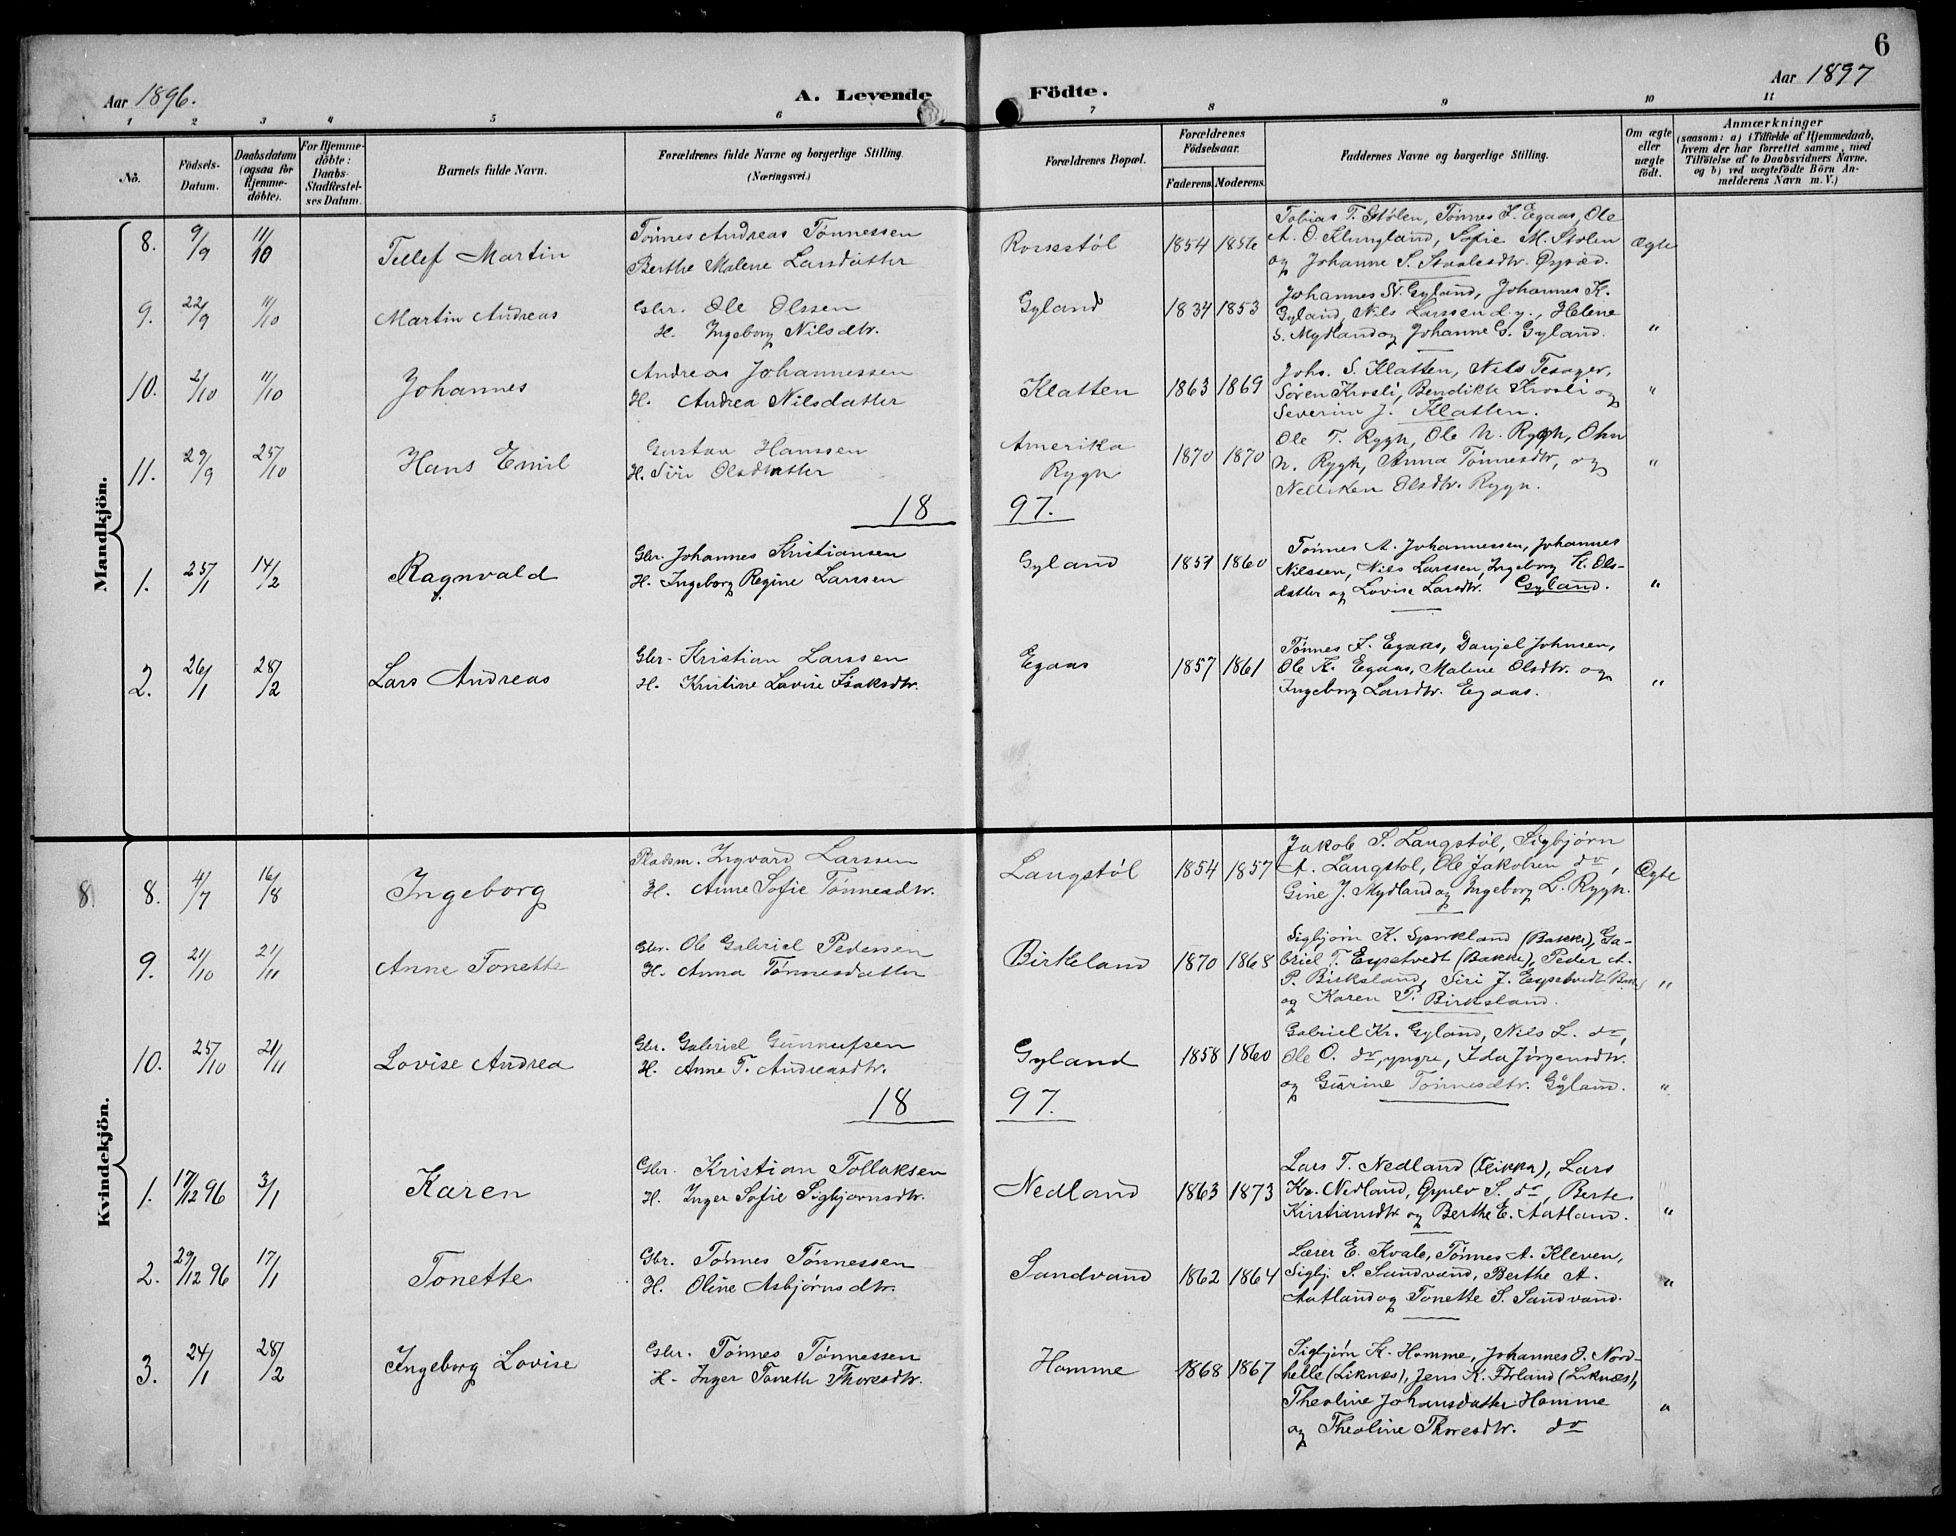 6
Aar 1896. A. Levende Födte. Aar 1897
1 2 3 4 5 6 7 8 9 10 11
No. Födsels-Datum. Daabsdatum (ogsaa for Hjemme-döbte). For Hjemme-döbte: Daabs-Stadfæstel-ses Datum. Barnets fulde Navn. Forældrenes fulde Navne og borgerlige Stilling. (Næringsvei.) Forældrenes Bopæl. Forældrenes Födselsaar. Faderens. Moderens. Faddernes Navne og borgerlige Stilling. Om ægte eller uægte födt. Anmærkninger
(saasom: a) i Tilfælde af Hjemmedaab, hvem der har forrettet samme, med Tilföielse af to Daabsvidners Navne, og b) ved uægtefödte Börn An-melderens Navn m. V.)
Mandkjön.
8. 9/9 11/10 Tellef Martin
Tönnes Andreas Tönnessen
Berthe Malene Larsdatter
1854 1856
Tobias T. Stölen, Tönnes F. Egaas, Ole
A. O. Klungland, Sofie M. Stölen
og Johanne S. Staalesdtr.
Ægte
9. 22/9 11/10 Martin Andreas
Gbr. Ole Olssen
H. Ingeborg Nilsdtr.
Gyland 1834 1853
Johannes N. Gyland, Johannes K.
Gyland, Nils Larssen d.y., Helene
S. Mydland og Johanne G. Gyland.
"
10. 2/10 11/10 Johannes
Andreas Johannessen
H. Andrea Nilsdatter
Klatten 1863 1869
Johs. S. Klatten, Nils Tesager,
Sören Krosli, Bendikte Krosli og
Severine J. Klatten.
"
11. 29/9 25/10 Hans Emil
Gustav Hanssen
H. Siri Olsdatter
Amerika
Rygh
1870 1870
Ole T. Rygh, Ole N. Rygh, Ohn
N. Rygh, Anna Tönnesdtr, og
Nelliken Olsdtr. Rygh.
"
18 97.
1. 25/1 14/2 Ragnvald
Gbr. Johannes Kristiansen
H. Ingeborg Regine Larssen
Gyland 1857 1860
Tönnes A. Johannessen, Johannes
Nilssen, Nils Larssen, Ingeborg K. Ols-
datter og Lovise Larsdtr. Gyland.
"
2. 26/1 28/2 Lars Andreas
Gbr. Kristian Larssen
H. Kristine Lovise Isaksdtr.
Egaas 1857 1861
Tönnes F. Egaas, Danjel Johnsen,
Ole K. Egaas, Malene Olsdtr. og
Ingeborg Larsdtr. Egaas.
"
Kvindekjön.
8
8. 4/7 16/8 Ingeborg
Pladsm. Ingvard Larssen
H. Anne Sofie Tönnesdtr.
Langstöl 1854 1857
Jakob S. Langstöl, Sigbjörn
A. Langstöl, Ole Jakobsen do,
Gine J. Mydland og Ingeborg L. Rygh.
Ægte
9. 21/10 21/11 Anne Tonette
Gbr. Ole Gabriel Pedersen
H. Anna Tönnesdatter
Birkeland 1870 1868
Sigbjörn K. (Bakke), Ga-
briel T. (Bakke), Peder A.
P. Birkeland, Siri J.
og Karen P. Birkeland.
"
10. 25/10 21/11 Lovise Andrea
Gbr. Gabriel Gunnufsen
H. Anne T. Andreasdtr.
Gyland 1858 1860
Gabriel Kr. Gyland, Nils L. do,
Ole O. do, yngre, Ida Jörgensdtr.
og Gurine Tönnesdtr. Gyland.
"
18 97.
1. 17/12 96 3/1 Karen
Gbr. Kristian Tollaksen
H. Inger Sofie Sigbjörnsdtr.
Nedland 1863 1873
Lars T. Nedland (Feikka), Lars
Kr. Nedland, S. do, Berte
Kristiansdtr og Berthe E. Aatland.
"
2. 29/12 96 17/1 Tonette
Gbr. Tönnes Tönnessen
H. Oline Asbjörnsdtr.
Sandvand 1862 1864
Lærer E. Kvale, Tönnes A. Kleven,
Sigbj. S. Sandvand, Berthe A.
Aatland og Tonette S. Sandvand.
"
3. 24/1 28/2 Ingeborg Lovise
Gbr. Tönnes Tönnessen
H. Inger Tonette Thoresdtr.
Homme 1868 1867
Sigbjörn K. Homme, Johannes O. Nord-
helle (Liknæs), Jens K. Förland (Liknæs),
Theoline Johansdatter Homme
og Theoline Thoresdtr. do
"